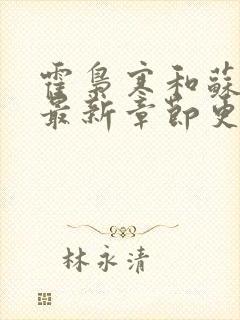 霍梟寒和蘇
最新章節更
林永清